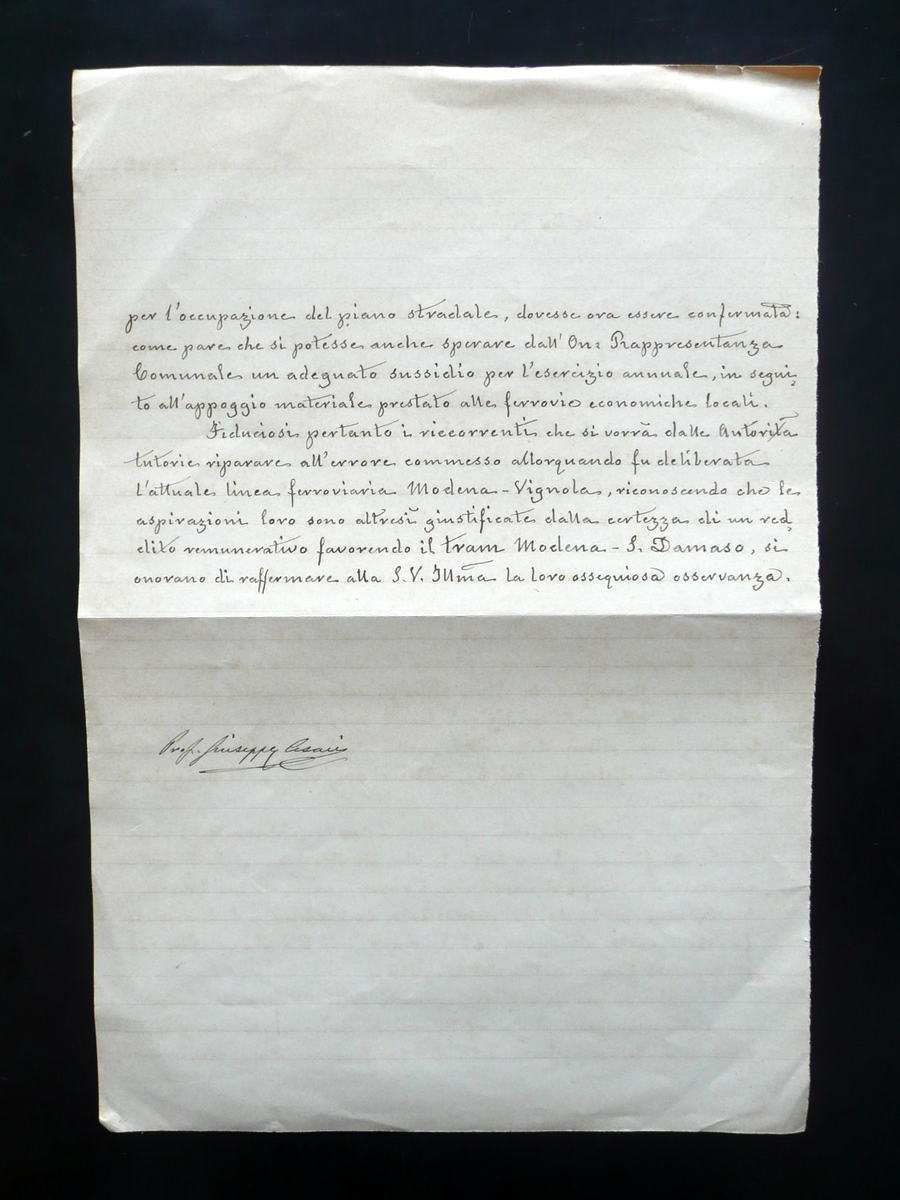 per l'occupazione del piano stradale, dovesse ora essere confermata:
come pare che si potesse anche sperare dall'On: Rappresentanza
Comunale un adeguato sussidio per l'esercizio annuale, in segui,
to all'appoggio materiale prestato alle ferrovie economiche locali.
Fiduciosi pertanto i riccorrenti che si vorrà dalle Autorità
tutorie riparare all'errore commesso allorquando fu deliberata
l'attuale linea ferroviaria Modena - Vignola, riconoscendo che le
aspirazioni loro sono altresì giustificate dalla certezza di un red,
dito remunerativo favorendo il tram Modena - S. Damaso, si
onorano di raffermare alla S. V. Illma la loro ossequiosa osservanza.
Prof. Giuseppe Cesari